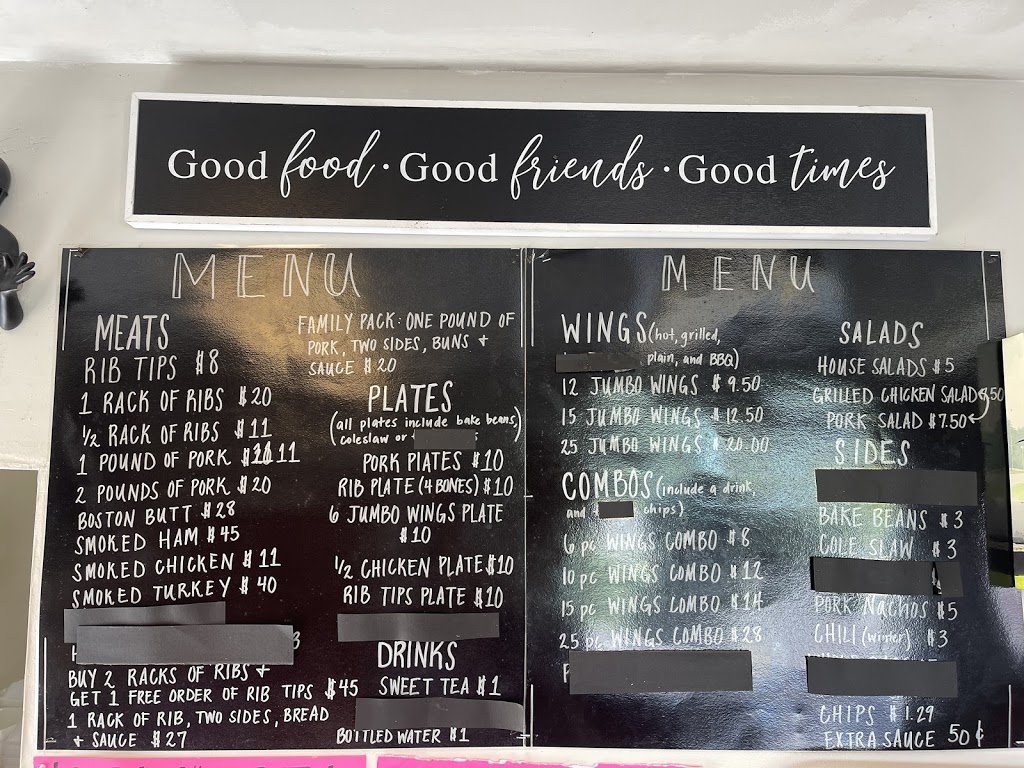 Good food · Good friends · Good times
MENU
MEATS
RIB TIPS $8
1 RACK OF RIBS $20
1/2 RACK OF RIBS $11
1 POUND OF PORK $11
2 POUNDS OF PORK $20
BOSTON BUTT $28
SMOKED HAM $45
SMOKED CHICKEN $11
SMOKED TURKEY $40
BUY 2 RACKS OF RIBS +
GET 1 FREE ORDER OF RIB TIPS $45
1 RACK OF RIB, TWO SIDES, BREAD
+ SAUCE $27
FAMILY PACK: ONE POUND OF
PORK, TWO SIDES, BUNS +
SAUCE $20
PLATES
(all plates include bake beans,
coleslaw or
PORK PLATES $10
RIB PLATE (4 BONES) $10
6 JUMBO WINGS PLATE
$10
1/2 CHICKEN PLATE $10
RIB TIPS PLATE $10
DRINKS
SWEET TEA $1
BOTTLED WATER $1
MENU
WINGS (hot, grilled,
plain, and BBQ)
12 JUMBO WINGS $9.50
15 JUMBO WINGS $12.50
25 JUMBO WINGS $20.00
COMBOS (include a drink,
and chips)
6 pc WINGS COMBO $8
10 pc WINGS COMBO $12
15 pc WINGS COMBO $14
25 pc WINGS COMBO $28
SALADS
HOUSE SALADS $5
GRILLED CHICKEN SALAD
PORK SALAD $7.50
SIDES
BAKE BEANS $3
COLE SLAW $3
PORK NACHOS $5
CHILI (winter) $3
CHIPS $1.29
EXTRA SAUCE 50¢